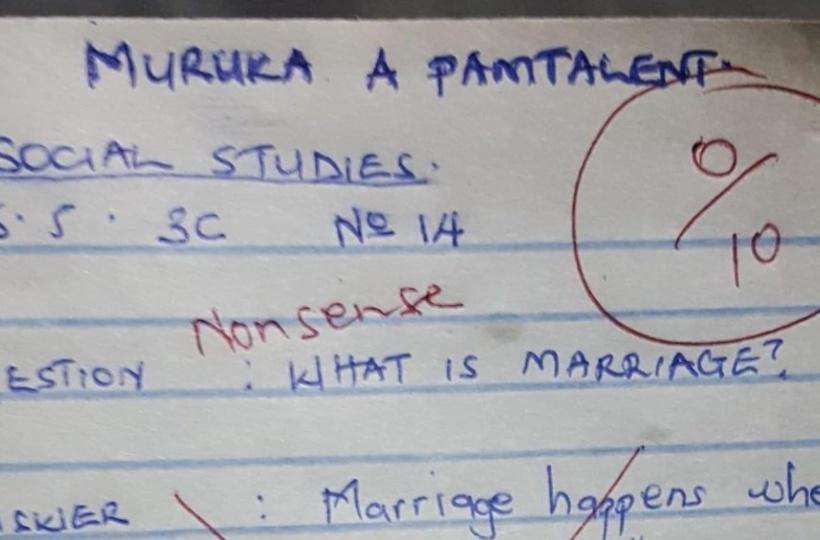 MURUKA A PAMTALENT
SOCIAL STUDIES.
S. S. 3C No 14
0/10
Nonsense
ESTION : WHAT IS MARRIAGE?
: Marriage happens whe